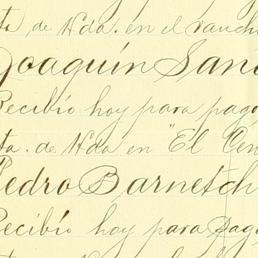 ta, de Hda. en el ranch
Joaquín Sant
Recibio hoy para pag
ta. de Hda en "El Cen
Pedro Barnetch
Recibío hoy para pag